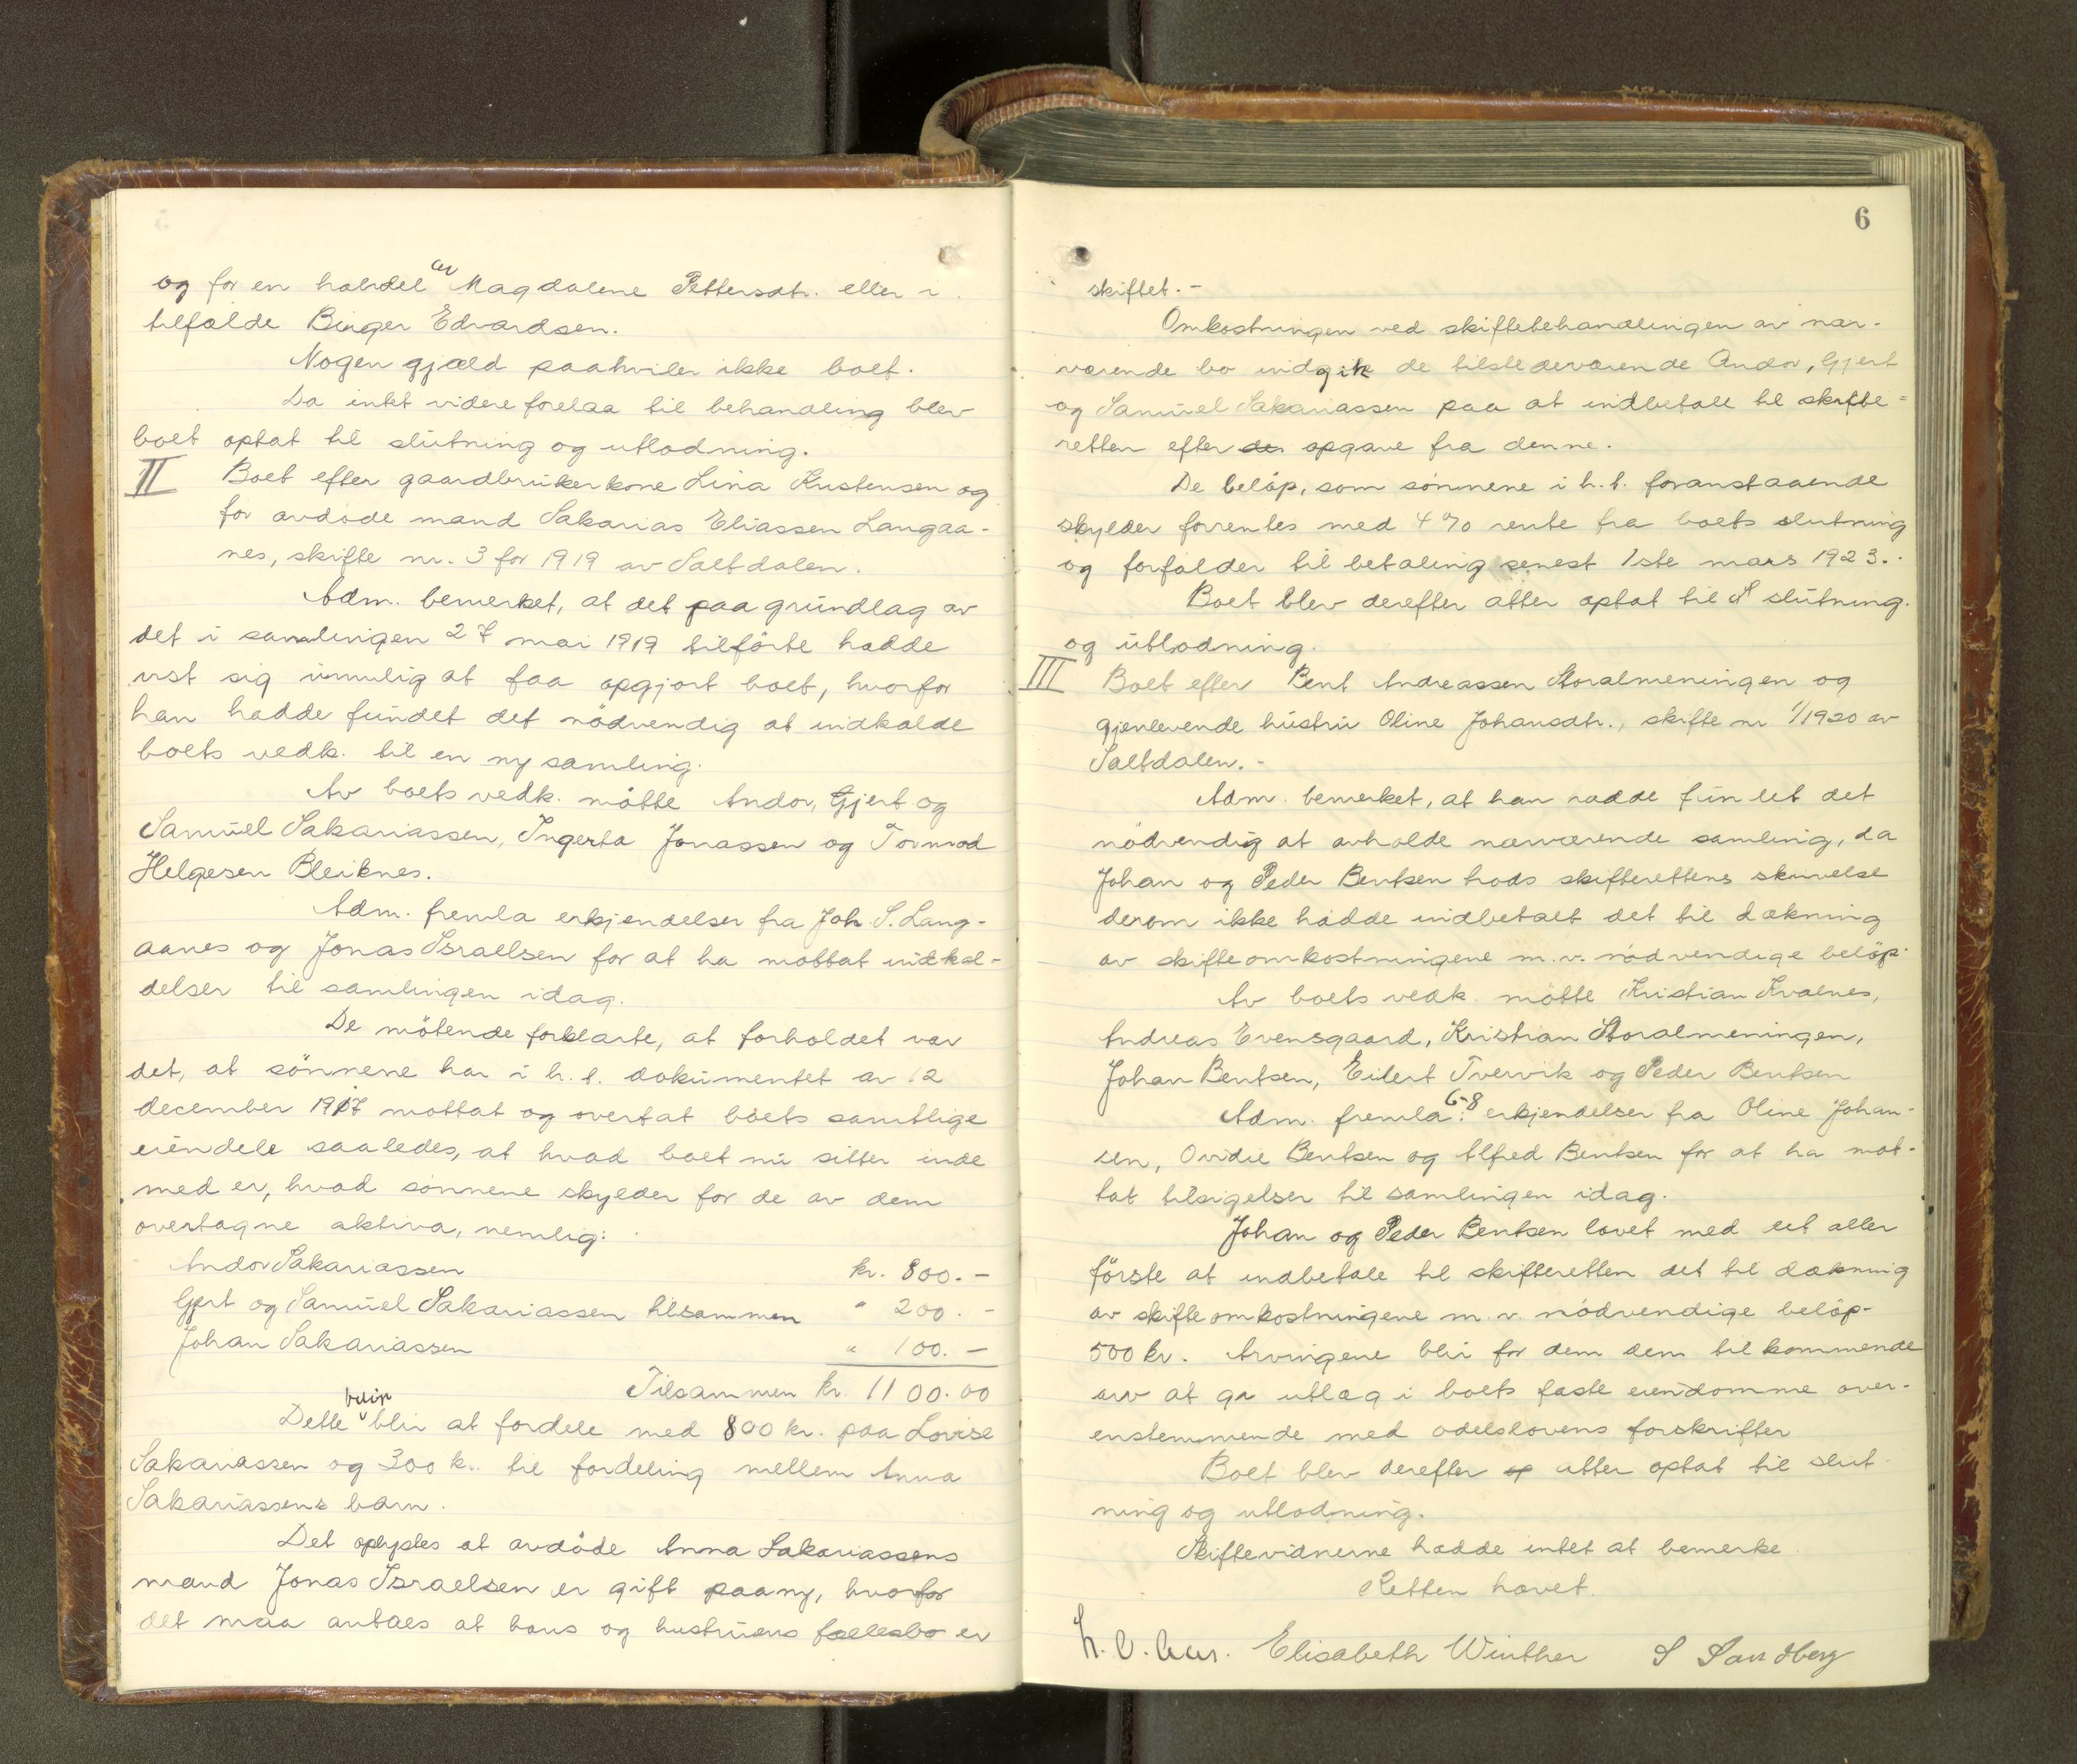 og for en halvdel av Magdalene Pettersdtr. eller i
tilfælde Birger Edvardsen.
Nogen gjæld paahviler ikke boet.
Da intet videre forelaa til behandling blev
boet optat til slutning og utlodning.
II Boet efter gaardbrukerkone Lina Kristensen og
før avdøde mand Sakarias Eliassen Langaa-
nes, skifte nr. 3 for 1919 av Saltdalen.
Adm. bemerket, at det paa grundlag av
det i samlingen 27 mai 1919 tilförte hadde
vist sig umulig at faa opgjort boet, hvorfor
han hadde fundet det nödvendig at indkalde
boets vedk. til en ny samling.
Av boets vedk. mötte Andor, Gjert og
Samuel Sakariassen, Ingerta Jonassen og Tormod
Helgesen Bleiknes.
Adm. fremla erkjendelser fra Joh. S. Lang-
aanes og Jonas Israelsen for at ha mottat indkal-
delser til samlingen idag.
De mötende forklarte, at forholdet var
det, at sönnene har i h. t. dokumentet av 12
december 1917 mottat og overtat boets samtlige
eiendele saaledes, at hvad boet nu sitter inde
med er, hvad sönnene skylder for de av dem
overtagne aktiva, nemlig:
Andor Sakariassen kr. 800.-
Gjert og Samuel Sakariassen tilsammen " 200.-
Johan Sakariassen " 100.-
Tilsammen kr 1100.00
blir
Dette blir at fordele med 800 kr. paa Lovise
Sakariassen og 300 k. til fordeling mellem Anna
Sakariassens barn.
Det oplystes at avdöde Anna Sakariassens
mand Jonas Israelsen er gift paany, hvorfor
det maa antaes at hans og hustruens fællesbo er
6
skiftet.-
Omkostningen ved skiftebehandlingen av nær-
værende bo indgik de tilstedeværende Andor, Gjert
og Samuel Sakariassen paa at indbetale til skifte=
retten efter de opgave fra denne.
De belöp, som sönnene i h. t. foranstaaende
skylder forrentes med 4 % rente fra boets slutning
og forfalder til betaling senest 1ste mars 1923.
Boet blev derefter atter optat til slutning.
og utlodning.
III Boet efter Bent Andreassen Storalmeningen og
gjenlevende hustru Oline Johansdtr., skifte nr 1/1920 av
Saltdalen.-
Adm. bemerket, at han hadde fundet det
nödvendig at avholde nærværende samling, da
Johan og Peder Bentsen trods skifterettens skrivelse
derom ikke hadde indbetalt det til dækning
av skifteomkostningene m.v. nödvendige belöp.
Av boets vedk. mötte Kristian Kvalnes,
Andreas Evensgaard, Kristian Storalmeningen,
Johan Bentsen, Eilert Tvervik og Peder Bentsen
Adm. fremla: 6-8 erkjendelser fra Oline Johan-
sen, Ovidie Bentsen og Alfred Bentsen for at ha mot-
tat tilsigelser til samlingen idag.
Johan og Peder Bentsen lovet med det aller
förste at indbetale til skifteretten det til dækning
av skifteomkostningene m. v. nödvendige belöp-
500 kr. Arvingene blir for dem dem tilkommende
arv at gi utlæg i boets faste eiendomme over-
enstemmende med odelslovens forskrifter
Boet blev derefter op atter optat til slut-
ning og utlodning.
Skiftevidnerne hadde intet at bemerke.
Retten hævet.
Elisabeth Winther S Sandberg